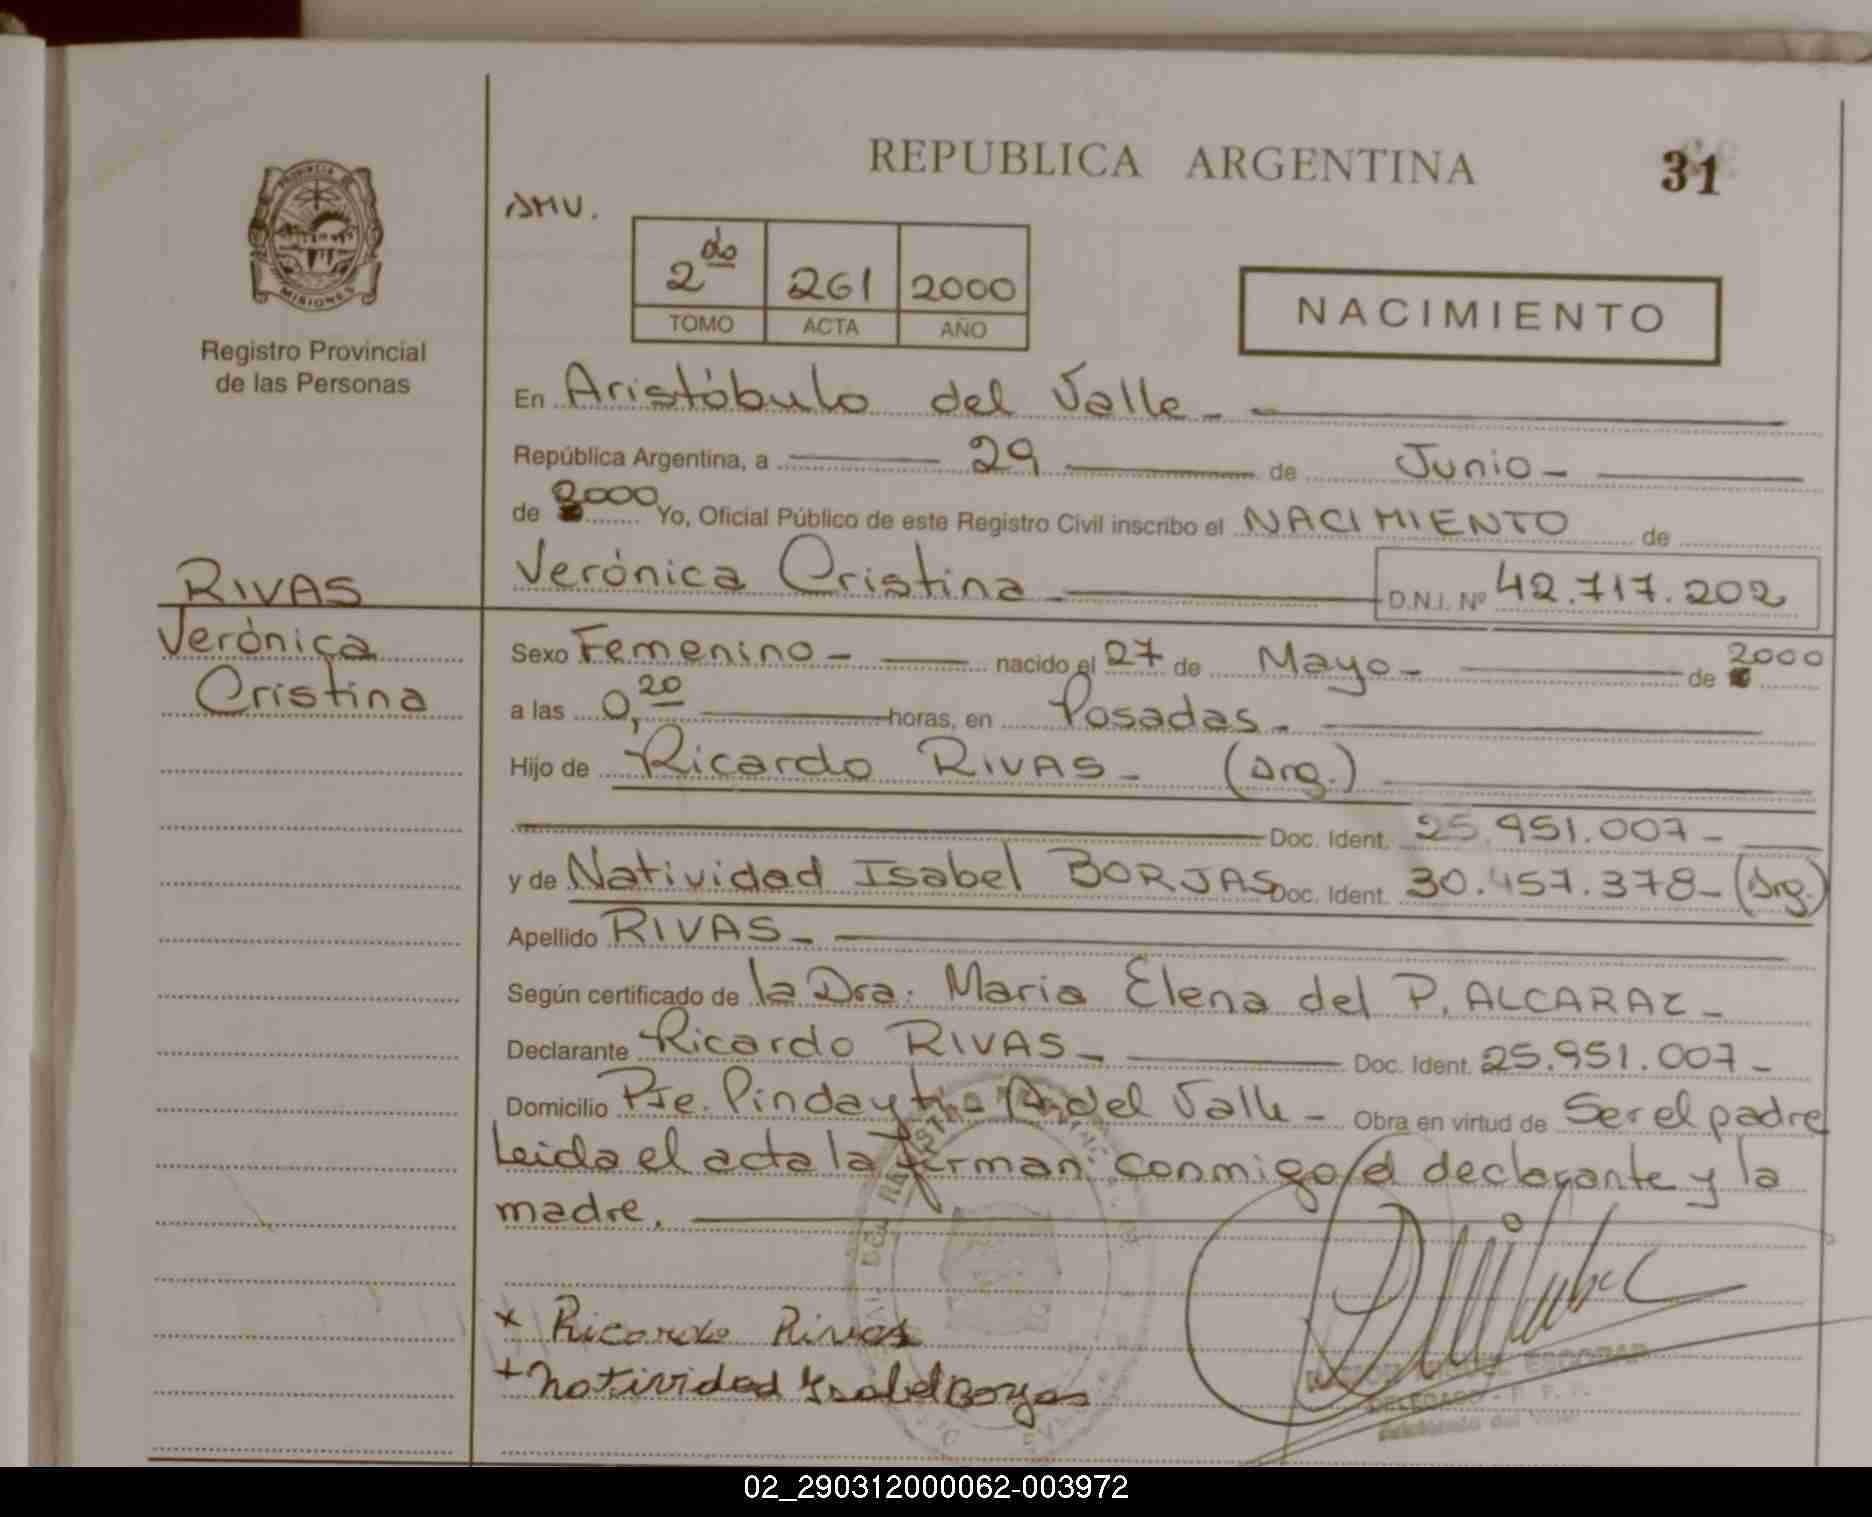 REPUBLICA ARGENTINA
31
PROVINCIA DE
MISIONES
Registro Provincial
de las Personas
AMV.
2do 261 2000
TOMO ACTA AÑO
NACIMIENTO
En Aristóbulo del Valle -
República Argentina, a 29 de Junio -
de 2000 Yo, Oficial Público de este Registro Civil inscribo el NACIMIENTO de
Verónica Cristina D.N.I. Nº 42.717.202
RIVAS
Verónica
Cristina
Sexo Femenino - nacido el 27 de Mayo - de 2000
a las 0,20 horas, en Posadas -
Hijo de Ricardo RIVAS - (Arg.)
Doc. Ident. 25.951.007 -
y de Natividad Isabel BORJAS Doc. Ident. 30.457.378 - (Arg.)
Apellido RIVAS -
Según certificado de la Dra. Maria Elena del P. ALCARAZ -
Declarante Ricardo RIVAS - Doc. Ident. 25.951.007 -
Domicilio Pje. Pindayti - A. del Valle - Obra en virtud de Ser el padre
Leida el acta la firman conmigo el declarante y la
madre.
x Ricardo Rivas
+ Natividad Ysabel Borgas
ESCOBAR
DELEGADO
Aristóbulo del Valle
02_290312000062-003972